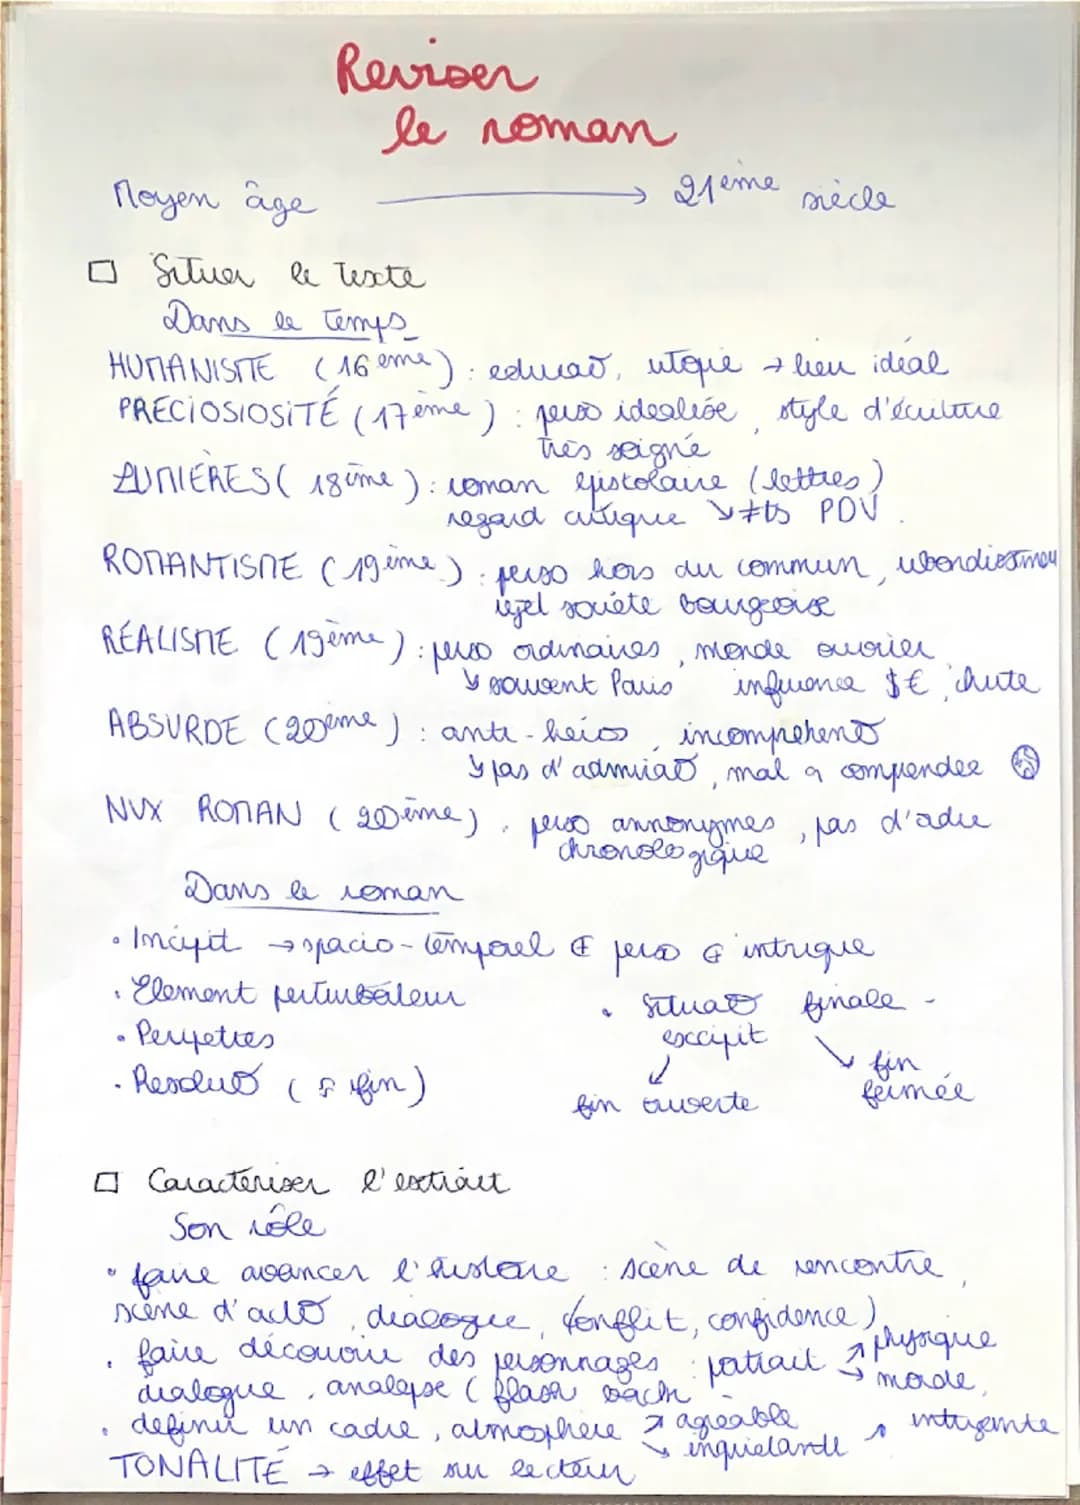 Reviser
le roman
Moyen âge → 21ème siècle
□ Situer le texte
Dans le temps
HUMANISTE (16ème) : educaō, utopie → lieu idéal
PRÉCIOSIOSITÉ (17ème) : perso idealisé, style d'écriture
très soigné
LUMIÈRES (18ème) : roman epistolaire (lettres)
regard critique ↘ ≠ts PDV.
ROMANTISME (19ème) : perso hors du commun,
rejet société bourgeoise
RÉALISME (19ème) : perso ordinaires, monde ouvrier,
↘ souvent Paris influence $€, chute
ABSURDE (20ème) : anti-héros, incomprehenō
↘ pas d'admiraō, mal a comprendre
NVX ROMAN (20ème), perso annonymes, pas d'adre
chronologique
Dans le roman
• Incipit → spacio-temporel et perso et intrigue
• Element perturbateur
• Situaō finale -
• Peripeties
excipit
• Resoluō ( fin)
↙ fin ouverte
↘ fin fermée
□ Caractériser l'extrait
Son rôle
• faire avancer l'histoire : scène de rencontre,
scène d'actō, dialogue, conflit, confidence)
• faire découvrir des personnages : portrait ↗ physique → morale,
dialogue, analepse ( flash back
• definir un cadre, atmosphère ↗ agréable ↘ inquietante, intrigante
TONALITÉ → effet sur lecteur